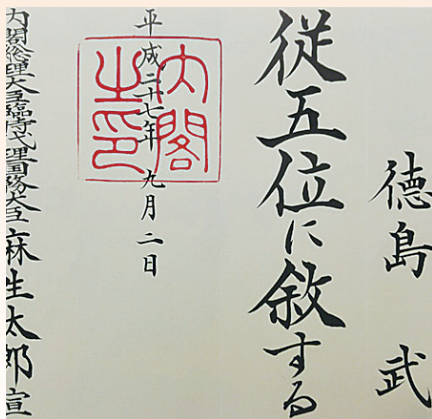 徳島 武
従五位に叙する
平成二十七年 九月二日
内閣之印
内閣総理大臣臨時代理国務大臣麻生太郎宣